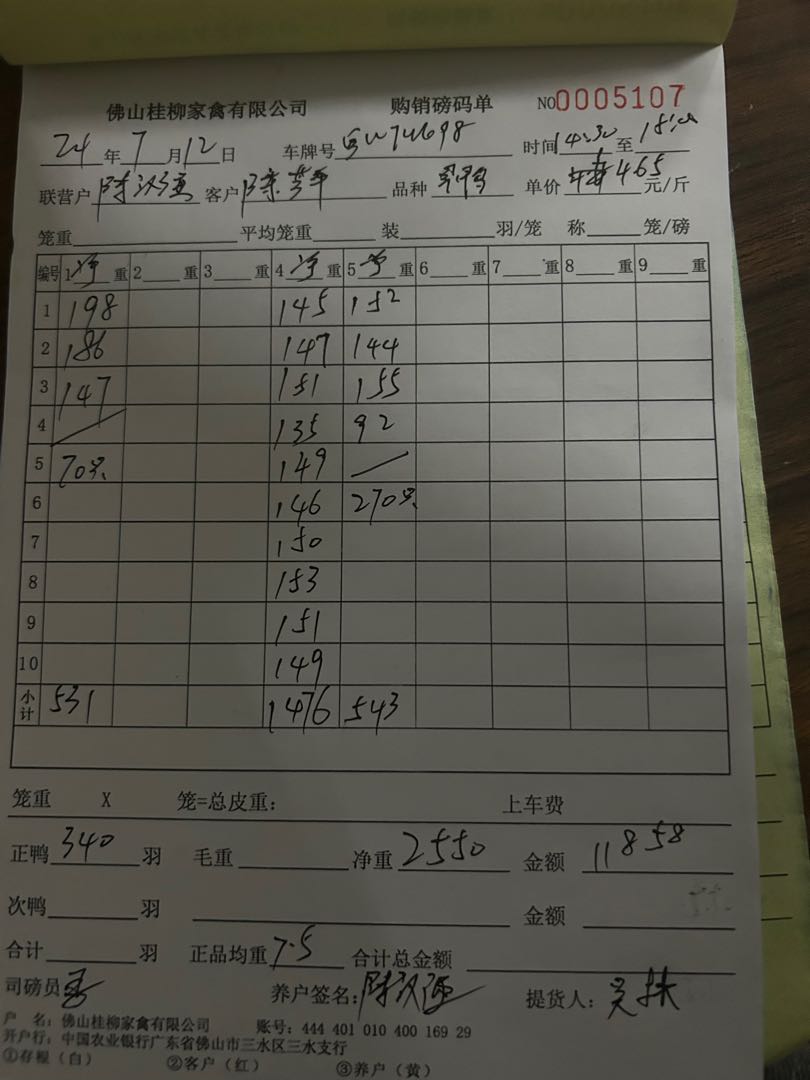 佛山桂柳家禽有限公司 购销磅码单 NO0005107
24年7月12日 车牌号 时间14:30至
联营户 客户 品种 单价 465元/斤
笼重 平均笼重 装 羽/笼 称 笼/磅
编号 1净重 2重 3重 4净重 5净重 6重 7重 8重 9重
1 198 145 152
2 186 147 144
3 147 151 155
4 135 92
5 70只 149
6 146 270只
7 150
8 153
9 151
10 149
小计 531 1476 543
笼重 X 笼=总皮重: 上车费
正鸭340羽 毛重 净重2550 金额11858
次鸭 羽 金额
合计 羽 正品均重7.5 合计总金额
司磅员 养户签名:陈汉强 提货人:
户 名:佛山桂柳家禽有限公司 账号:444 401 010 400 169 29
开户行:中国农业银行广东省佛山市三水区三水支行
①存根(白) ②客户(红) ③养户(黄)